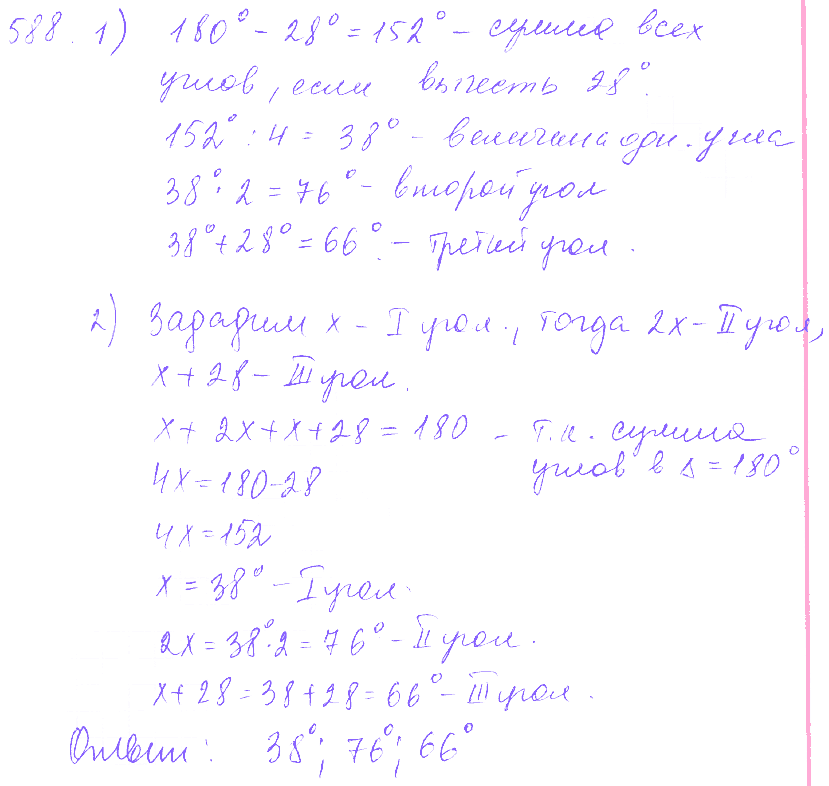 588. 1) 180° - 28° = 152° - сумма всех
углов, если вычесть 28°.
152° : 4 = 38° - величина одн. угла
38° · 2 = 76° - второй угол
38° + 28° = 66° - третий угол.
2) Зададим x - I угол, тогда 2x - II угол,
x + 28 - III угол.
x + 2x + x + 28 = 180 - т.к. сумма
углов в Δ = 180°
4x = 180 - 28
4x = 152
x = 38° - I угол.
2x = 38° · 2 = 76° - II угол.
x + 28 = 38 + 28 = 66° - III угол.
Ответ: 38°; 76°; 66°